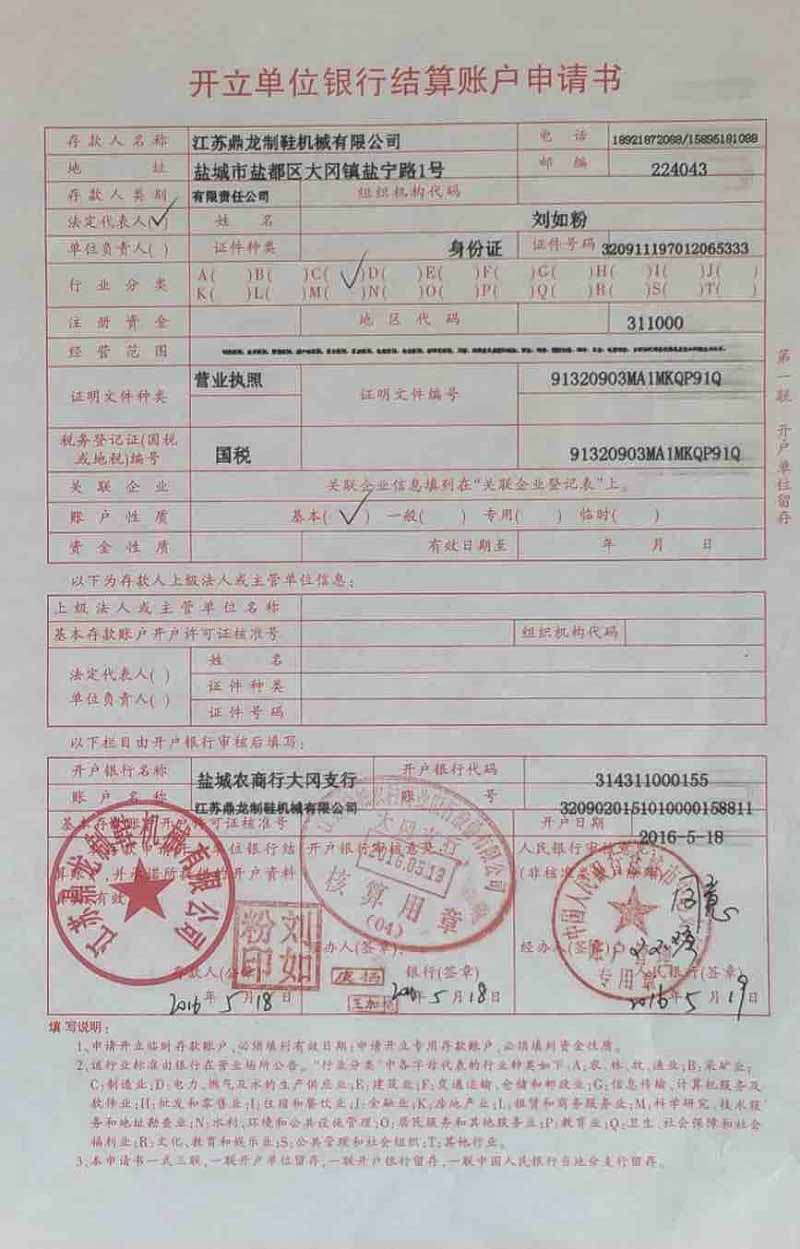 开立单位银行结算账户申请书
存款人名称 江苏鼎龙制鞋机械有限公司 电话 18921872088/15895181088
地址 盐城市盐都区大冈镇盐宁路1号 邮编 224043
存款人类别 有限责任公司 组织机构代码
法定代表人(✓) 姓名 刘如粉
单位负责人( ) 证件种类 身份证 证件号码 320911197012065333
行业分类 A( )B( )C(✓)D( )E( )F( )G( )H( )I( )J( )
K( )L( )M( )N( )O( )P( )Q( )R( )S( )T( )
注册资金 地区代码 311000
经营范围
证明文件种类 营业执照 证明文件编号 91320903MA1MKQP91Q
税务登记证(国税
或地税)编号 国税 91320903MA1MKQP91Q
关联企业 关联企业信息填列在“关联企业登记表”上。
账户性质 基本(✓) 一般( ) 专用( ) 临时( )
资金性质 有效日期至 年 月 日
第一联 开户单位留存
以下为存款人上级法人或主管单位信息:
上级法人或主管单位名称
基本存款账户开户许可证核准号 组织机构代码
法定代表人( ) 姓名
单位负责人( ) 证件种类
证件号码
以下栏目由开户银行审核后填写:
开户银行名称 盐城农商行大冈支行 开户银行代码 314311000155
账户名称 江苏鼎龙制鞋机械有限公司 账号 3209020151010000158811
基本存款账户开户许可证核准号 开户日期 2016-5-18
单位银行结 开户银行审核意见: 人民银行审核意见:
算账户,并承诺所提供的开户资料 (非核准类账户除外)
有效
江苏鼎龙制鞋机械有限公司
刘如粉印
大冈支行
2016.05.18
核算用章
(04)
账户管理
专用章
经办人(签章) 经办人(签章)
存款人(公章) 银行(签章) 人民银行(签章)
2016年5月18日 2016年5月18日 2016年5月19日
填写说明:
1、申请开立临时存款账户,必须填列有效日期;申请开立专用存款账户,必须填列资金性质。
2、该行业标准由银行在营业场所公告。“行业分类”中各字母代表的行业种类如下:A:农、林、牧、渔业;B:采矿业;
C:制造业;D:电力、燃气及水的生产供应业;E:建筑业;F:交通运输、仓储和邮政业;G:信息传输、计算机服务及
软件业;H:批发和零售业;I:住宿和餐饮业;J:金融业;K:房地产业;L:租赁和商务服务业;M:科学研究、技术服
务和地址勘查业;N:水利、环境和公共设施管理;O:居民服务和其他服务业;P:教育业;Q:卫生、社会保障和社会
福利业;R:文化、教育和娱乐业;S:公共管理和社会组织;T:其他行业。
3、本申请书一式三联,一联开户单位留存,一联开户银行留存,一联中国人民银行当地分支行留存。